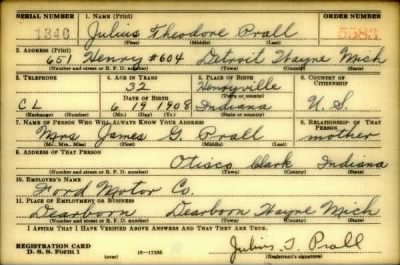 SERIAL NUMBER 1. NAME (Print) ORDER NUMBER
1340 Julius Theodore Prall 5583
(First) (Middle) (Last)
2. ADDRESS (Print)
651 Henry #604 Detroit Wayne Mich
(Number and street or R. F. D. number) (Town) (County) (State)
3. TELEPHONE 4. AGE IN YEARS 5. PLACE OF BIRTH 6. COUNTRY OF CITIZENSHIP
32 Henryville
(Town or county)
DATE OF BIRTH
CL 6 19 1908 Indiana U. S.
(Exchange) (Number) (Mo.) (Day) (Yr.) (State or country)
7. NAME OF PERSON WHO WILL ALWAYS KNOW YOUR ADDRESS 8. RELATIONSHIP OF THAT PERSON
Mrs James G. Prall mother
(Mr., Mrs., Miss) (First) (Middle) (Last)
9. ADDRESS OF THAT PERSON
Otisco Clark Indiana
(Number and street or R. F. D. number) (Town) (County) (State)
10. EMPLOYER'S NAME
Ford Motor Co.
11. PLACE OF EMPLOYMENT OR BUSINESS
Dearborn Dearborn Wayne Mich
(Number and street or R. F. D. number) (Town) (County) (State)
I AFFIRM THAT I HAVE VERIFIED ABOVE ANSWERS AND THAT THEY ARE TRUE.
REGISTRATION CARD
D. S. S. Form 1 (over) Julius T. Prall
(Registrant's signature)